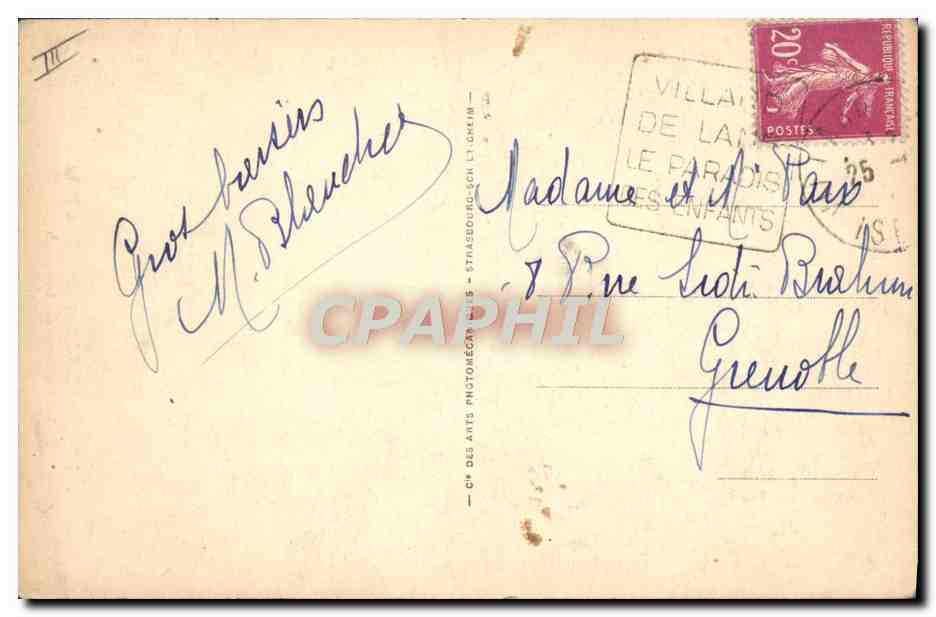 III
Gros baisers
M. Blanche
— Cie DES ARTS PHOTOMÉCANIQUES - STRASBOURG-SCHILTIGHEIM —
VILLARD
DE LANS
LE PARADIS
DES ENFANTS
20c
REPUBLIQUE FRANÇAISE
POSTES
25
ISE
Madame et Mr
8 Rue Sidi Brahim
Grenoble
CPAPHIL